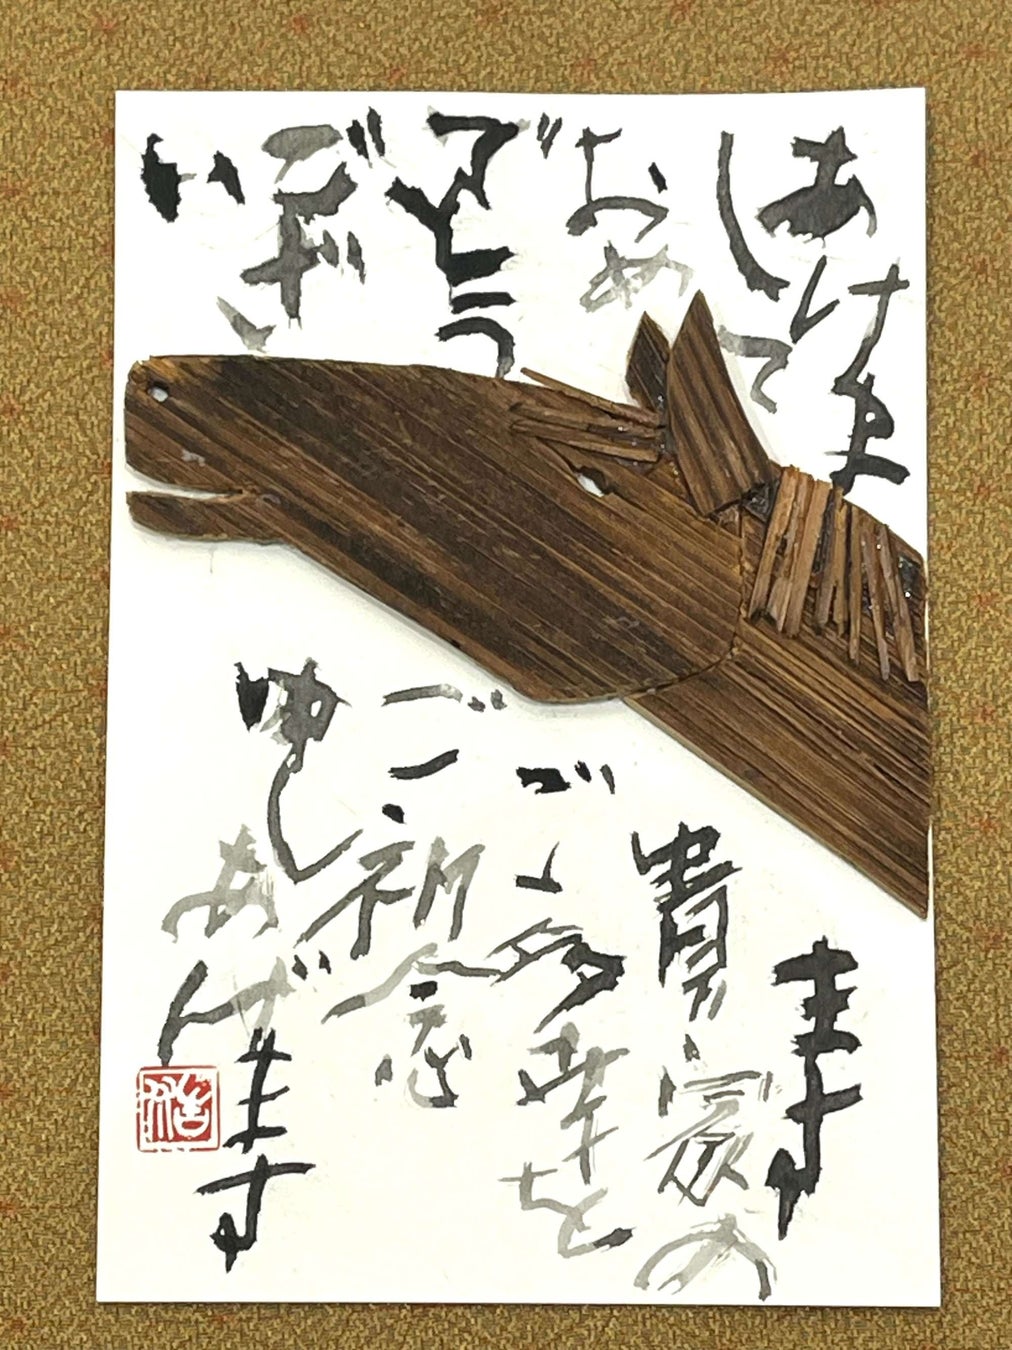 あけま
して
おめ
でとう
ござ
い
ます
貴家の
ご多幸を
ご祈念
申し
あげ
ます